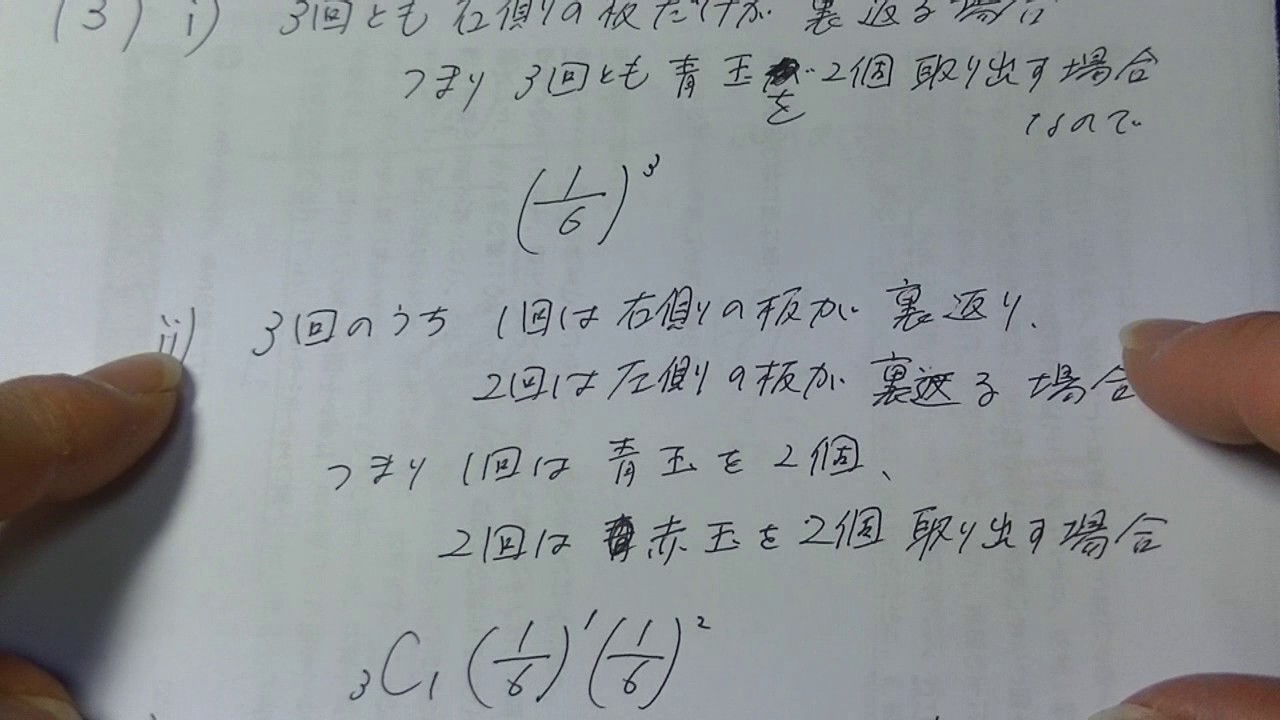 (3) i) 3回とも右側の板だけが裏返る場合
つまり3回とも青玉を2個取り出す場合
なので
(1/6)^3
ii) 3回のうち 1回は右側の板が裏返り、
2回は左側の板が裏返る場合
つまり1回は青玉を2個、
2回は赤玉を2個取り出す場合
₃C₁(1/6)^1(1/6)^2